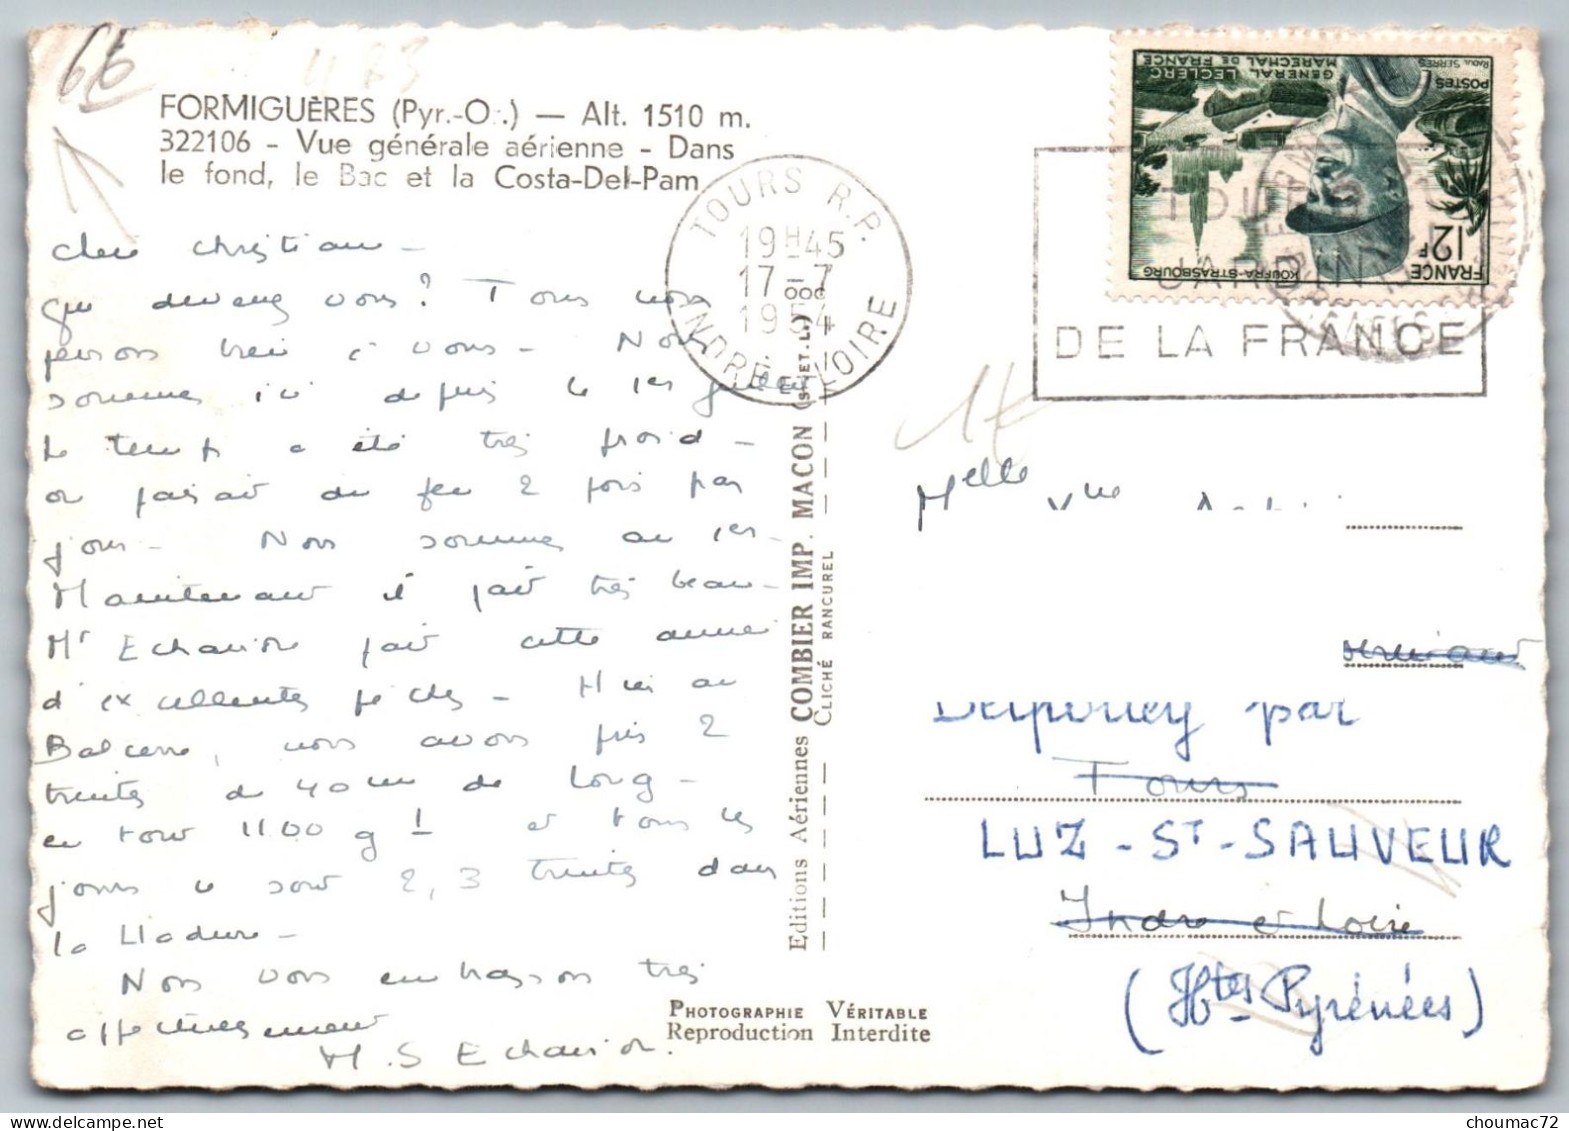 66
FORMIGUÈRES (Pyr.-Or.) — Alt. 1510 m.
322106 - Vue générale aérienne - Dans
le fond, le Bac et la Costa-Del-Pam
Chère Christiane -
que devenez vous? Tous nous
pensons bien à vous - Nous
sommes ici depuis le 1er juillet
Le temps a été très froid -
on faisait du feu 2 fois par
jour - Nous sommes au 1er.
Maintenant il fait très beau -
Mr Echavion fait cette année
d'excellentes pêches - Hier au
Balcère, nous avons pris 2
truites de 40 cm de long -
en tout 1100 g ! et tous les
jours le soir 2, 3 truites dans
la Lladure -
Nous vous embrassons très
affectueusement
M. S Echavion.
Editions Aériennes COMBIER IMP. MACON (S.-ET-L.)
CLICHÉ RANCUREL
PHOTOGRAPHIE VÉRITABLE
Reproduction Interdite
TOURS R.P.
19H45
17-7
1954
INDRE-ET-LOIRE
TOURS
JARDIN
DE LA FRANCE
POSTES
RAOUL SERRES
GÉNÉRAL LECLERC
MARÉCHAL DE FRANCE
KOUFRA-STRASBOURG
FRANCE
12F
Melle
par
Tours
LUZ - ST - SAUVEUR
Indre et Loire
(Htes Pyrénées)
choumac72